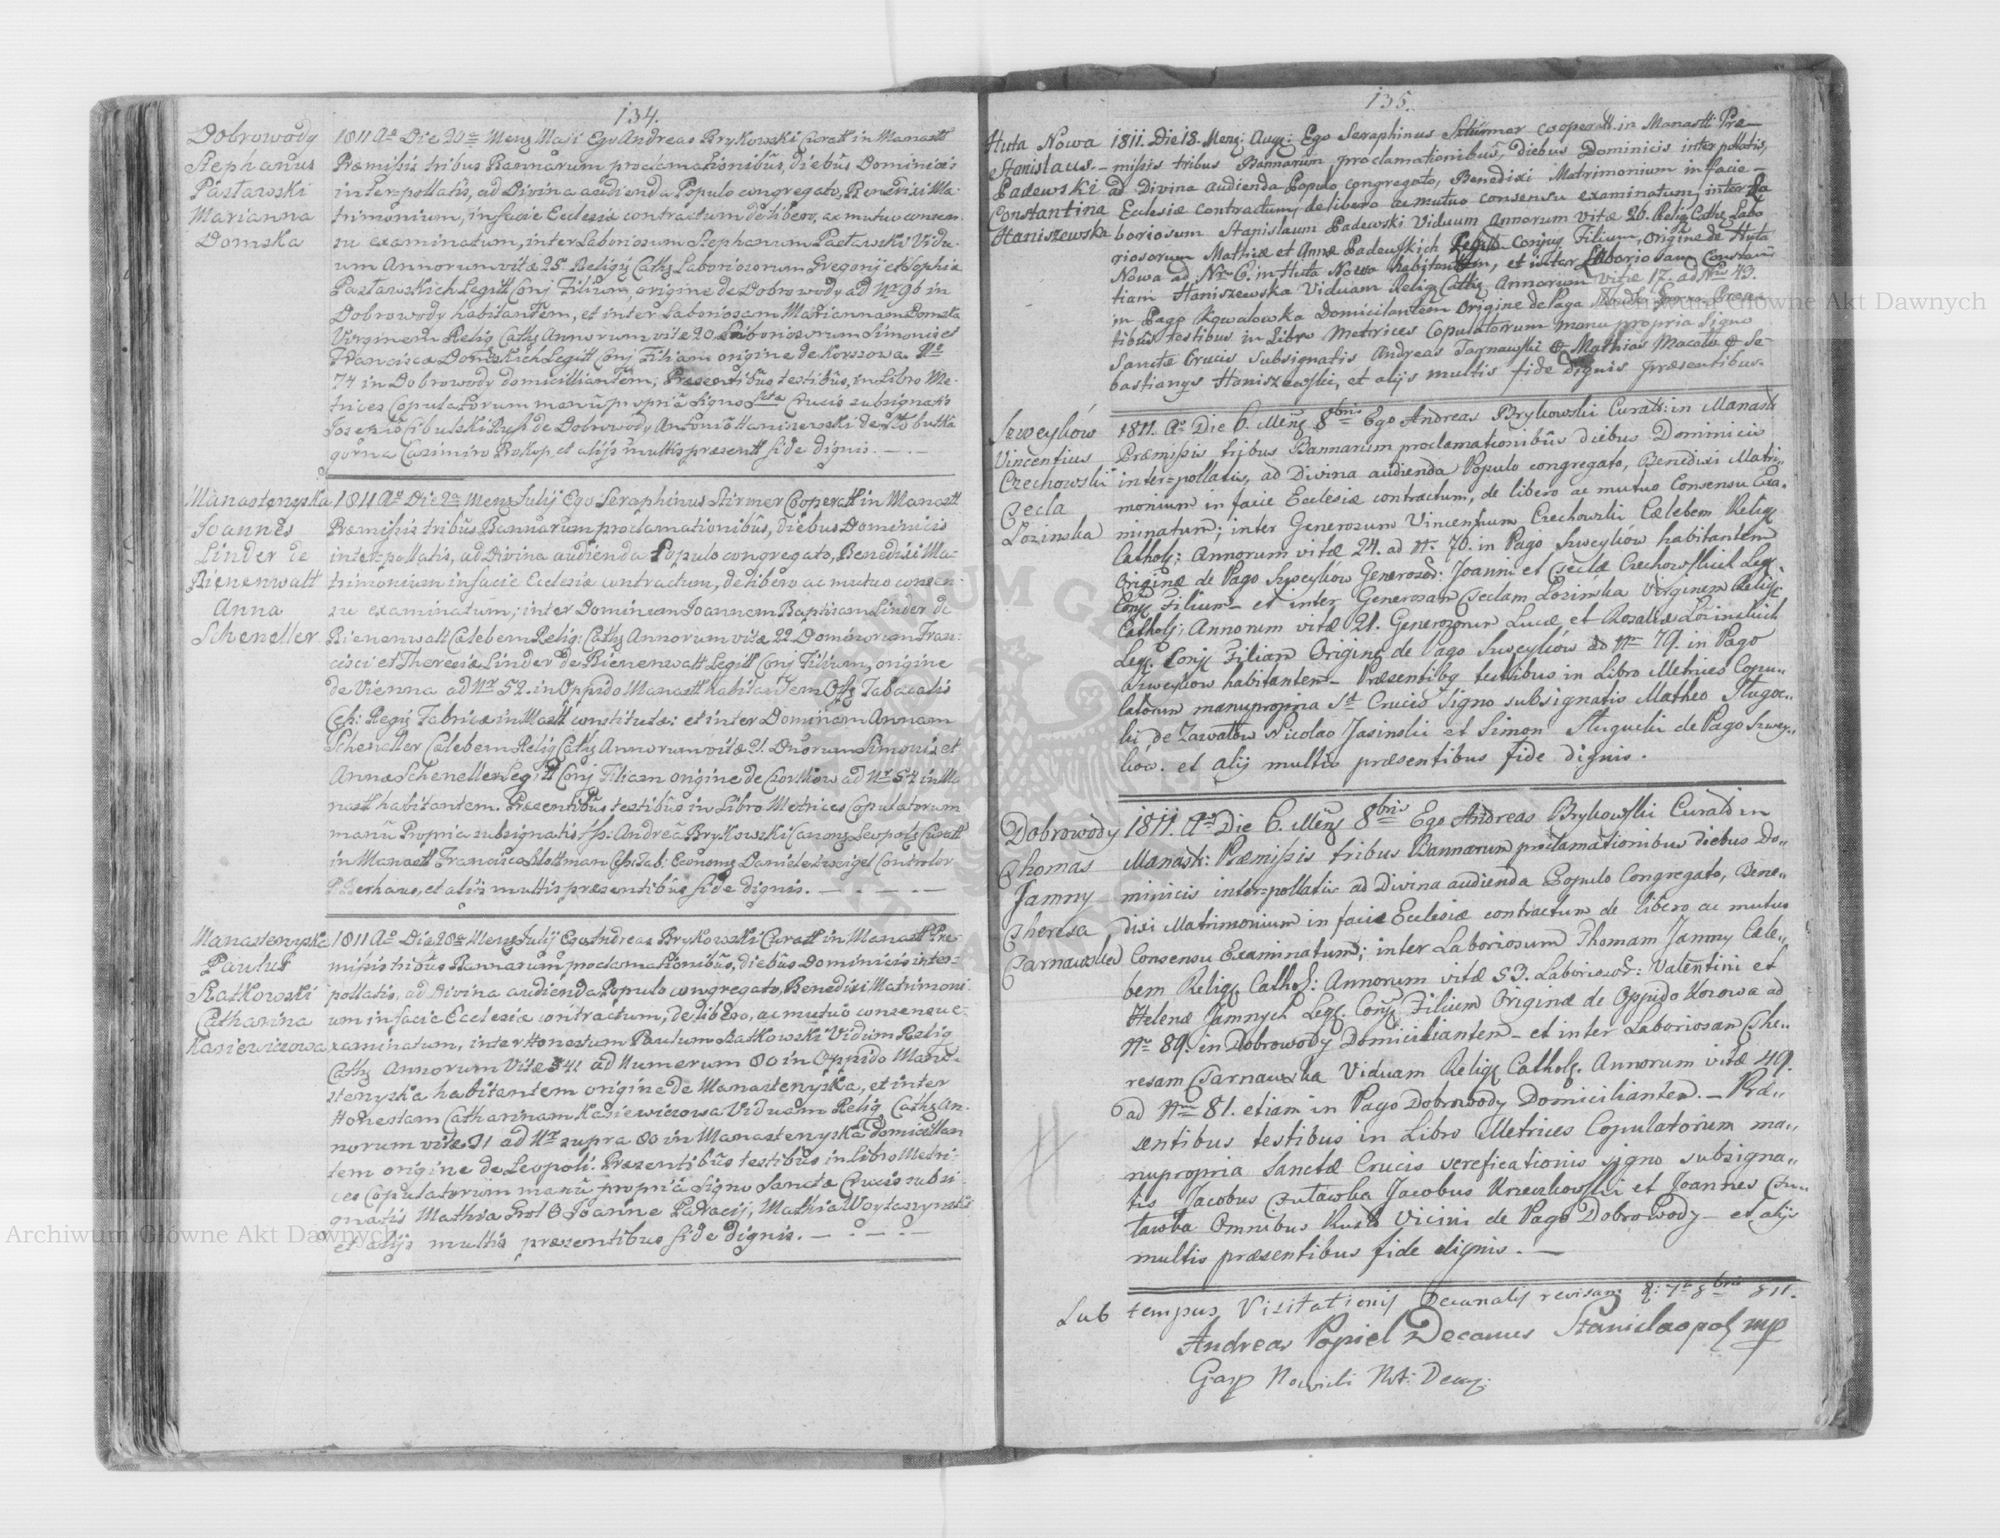 134.
Dobrowody
Stephanus
Pastawski
Marianna
Domska
1811 Ao Die 20a Menz Maji Ego Andreas Brykowski Curatt in Manastt
Præmissis tribus Bannarum proclamationibûs, diebûs Dominicis
inter-pollatis, ad Divina audienda Populo congregato, Benedixi Ma-
trimonium, in facie Ecclesiæ contractum de libero, ac mutuo consen-
su examinatum, inter Laboriosum Stephanum Pastawski Vidu-
um Annorum vitæ 25. Religij Cathz Laboriosorum Gregorij et Sophiæ
Pastawskich Legitt Conj Filium, origine de Dobrowody ad Nr 96 in
Dobrowody habitantem, et inter Laboriosam Mariannam Domska
Virginem Relig Cathz Annorum vitæ 20 Laboriosorum Simonis et
Franciscæ Domskich Legitt Conj Filiam origine de Korszowa No
74 in Dobrowody domicilliantem; Præsentibûs testibûs, in Libro Me-
trices Copulatorum manû propriâ Signo Stæ Crucis subsignatis
Josepho Cibulski Rysi de Dobrowody Antonio Haniszewski de Słobutka
gorna Casimiro Prokop, et alijs multis præsentt fide dignis. — . —
Manastenyska
Joannes
Linder de
Bienenwalt
Anna
Scheneller
1811 Ao Die 2a Menz Julij Ego Seraphinus Stirmer Cooperatt in Manastt
Præmissis tribûs Bannarum proclamationibûs, diebus Dominicis
inter-pollatis, ad Divina audienda Populo congregato, Benedixi Ma-
trimonium in facie Ecclesiæ contractum, de libero ac mutuo consen-
su examinatum; inter Dominum Joannem Baptistam Linder de
Bienenwalt Cælebem Relig: Cathz Annorum vitæ 22 Dominorum Fran-
cisci et Theresiæ Linder de Bienenwalt Legitt Conj Filium, origine
de Vienna ad Nr 52. in Oppido Manastt habitantem Offz Tabacalis
Cch: Regij Fabricæ in Mastt constitutæ: et inter Dominam Annam
Scheneller Cælebem Relig Cathz Annorum vitæ 21. Dnorum Simonis et
Annæ Scheneller Legitt Conj Filiam origine de Czortkow ad Nr 54 in Ma
nastt habitantem. Præsentibûs testibûs in Libro Metrices Copulatorum
manû Propria subsignatis Andreâ Brykowski Canonz Leopolz Curatt
in Manastt Francisco Klottman Chf: Tab: Economz Daniel Zweigel Controlor
P. Berhaus, et aliis multis præsentibûs fide dignis. — . — . —
Manastenyska
Paulus
Ratkowski
Catharina
Kasiewiczowa
1811 Ao Die 28a Menz Julij Ego Andreas Brykowski Curatt in Manastt Præ-
missis tribûs Bannarum proclamationibûs, diebûs Dominicis inter-
pollatis, ad Divina audienda Populo congregato, Benedixi Matrimoni
um in facie Ecclesiæ contractum, de libero, ac mutuo consensu e-
xaminatum, inter Honestum Paulum Ratkowski Viduum Relig
Cathz Annorum Vitæ 41 ad Numerum 80 in Oppido Mana-
stenyska habitantem origine de Manastenyska, et inter
Honestam Catharinam Kasiewiczowa Viduam Relig Cathz An-
norum vitæ 31 ad Nr supra 80 in Manastenyska Domicillian
tem origine de Leopoli. Præsentibûs testibûs in Libro Metri-
ces Copulatorum manû propriâ Signo Sanctæ Crucis subsi-
gnatis Mathia Joanne Mathia Woytaszynski
et alijs multis præsentibus fide dignis. — . — . —
135.
Huta Nowa
Stanislaus
Padewski
Constantina
Haniszewska
1811. Die 18. Menz: Aug: Ego Seraphinus Stürmer Cooperatt. in Manastt: Præ-
missis tribus Bannarum proclamationibus, diebus Dominicis inter pollatis,
ad Divina audienda Populo congregato, Benedixi Matrimonium in facie
Ecclesiæ contractum, delibero ac mutuo consensu examinatum, inter La
boriosum Stanislaum Padewski Viduum Annorum vitæ 26. Relig Cathz Labo
riosorum Mathiæ et Annæ Padewskich Legitt. Conjug Filium, Origine de Huta
Nowa ad Nr. 6. in Huta Nowa habitantem, et inter Laboriosam Constan
tiam Haniszewska Viduam Relig Cathz Annorum vitæ 17. ad Nro 43.
in Pago Kowalowka Domicilantem Origine de Paga Præsen-
tibus testibus in Libro Metrices Copulatorum manu propria Signo
Sanctæ Crucis subsignatis Andreas Tarnawski et Mathias Macała et Se-
bastianus Haniszewski, et alijs multis fide dignis præsentibus.
Szweyków
Vincentius
Czechowski
Tecla
Lozinska
1811. Ao Die 6. Menz 8bris Ego Andreas Brykowski Curatt: in Manastt
Præmissis tribus Bannarum proclamationibûs diebus Dominicis
inter=pollatis, ad Divina audienda Populo congregato, Benedixi Matri-
monium in facie Ecclesiæ contractum, de libero ac mutuo Consensu Exa-
minatum; inter Generosum Vincentium Czechowski Cælebem Relig
Catholz: Annorum vitæ 24. ad Nr. 70. in Pago Szweyków habitantem
Originæ de Pago Szweyków Generosor: Joanni et Teclæ Czechowskich Leg.
Conj Filium – et inter Generosam Teclam Łozińska Virginem Relig.
Catholz; Annorum vitæ 21. Generosorum Lucæ et Rosaliæ Łozinskich
Leg. Conj Filiam Origine de Pago Szweyków ad Nr 79. in Pago
Szweyków habitantem – Præsentibg testibus in Libro Metrices Copu-
latorum manupropria St Crucis Signo subsignatis Matheo Sługoc-
ki de Zawałów Nicolao Jasinski et Simon Sługucki de Pago Szwey-
kow. et alij multis præsentibus fide dignis.
Dobrowody
Thomas
Jamny
Theresa
Tarnawska
1811. Ao Die 6. Menz 8bris Ego Andreas Brykowski Curatt in
Manastt: Præmissis tribus Bannarum proclamationibus diebus Do-
minicis inter=pollatis ad Divina audienda Populo Congregato, Bene-
dixi Matrimonium in facie Ecclesiæ contractum de libero ac mutuo
Consensu Examinatum; inter Laboriosum Thomam Jamny Cæle-
bem Relig Cathol: Annorum vitæ 53. Laboriosor: Valentini et
Helenæ Jamnych Leg. Conj Filium Originæ de Oppido Korowa ad
Nr 89. in Dobrowody Domicilianten – et inter Laboriosam The-
resam Tarnawska Viduam Relig Catholz. Annorum vitæ 49.
ad Nrum 81. etiam in Pago Dobrowody Domicilianten. – Præ-
sentibus testibus in Libro Metrices Copulatorium ma-
nupropria Sanctæ Crucis vereficationis signo subsigna-
tis Jacobus Jacobus Krzeczkowski et Joannes
Omnibus Vicini de Pago Dobrowody – et alijs
multis præsentibus fide dignis. —
Sub tempus Visitationis Decanalis revisam d: 7a 8bris 811.
Andreas Popiel Decanus Stanislaopolz mp
Gasp Nowicki Not: Decz:
Archiwum Główne Akt Dawnych
Archiwum Główne Akt Dawnych